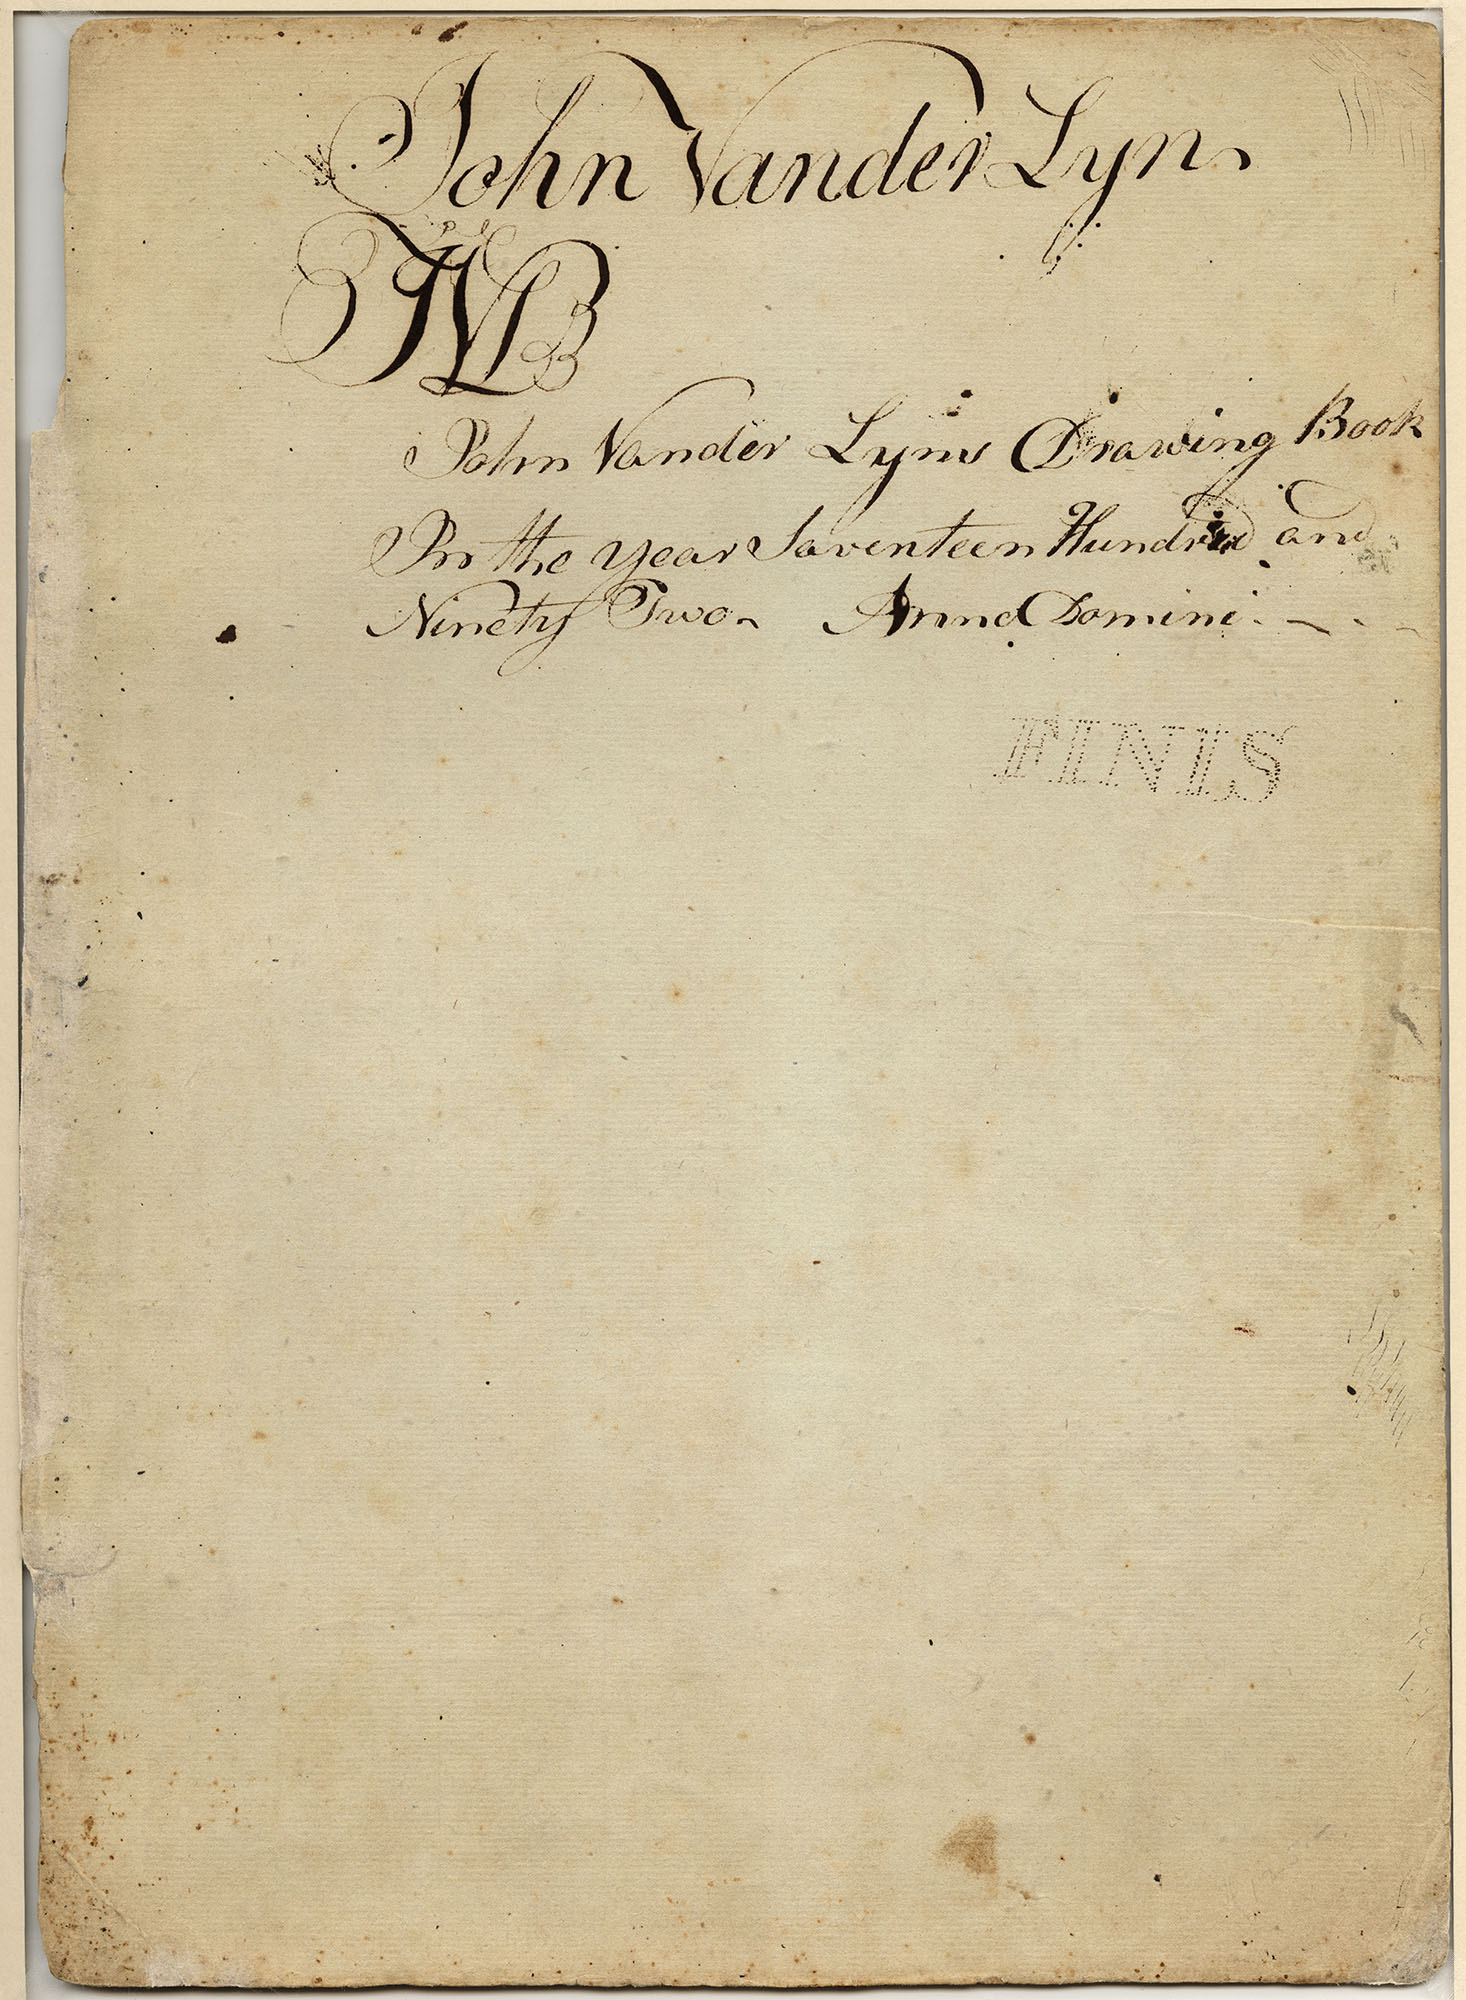 John Vander Lyn
JVLB
John Vander Lyns Drawing Book
In the year Saventeen Hundred and
Ninety Two Anno Domini
FINIS